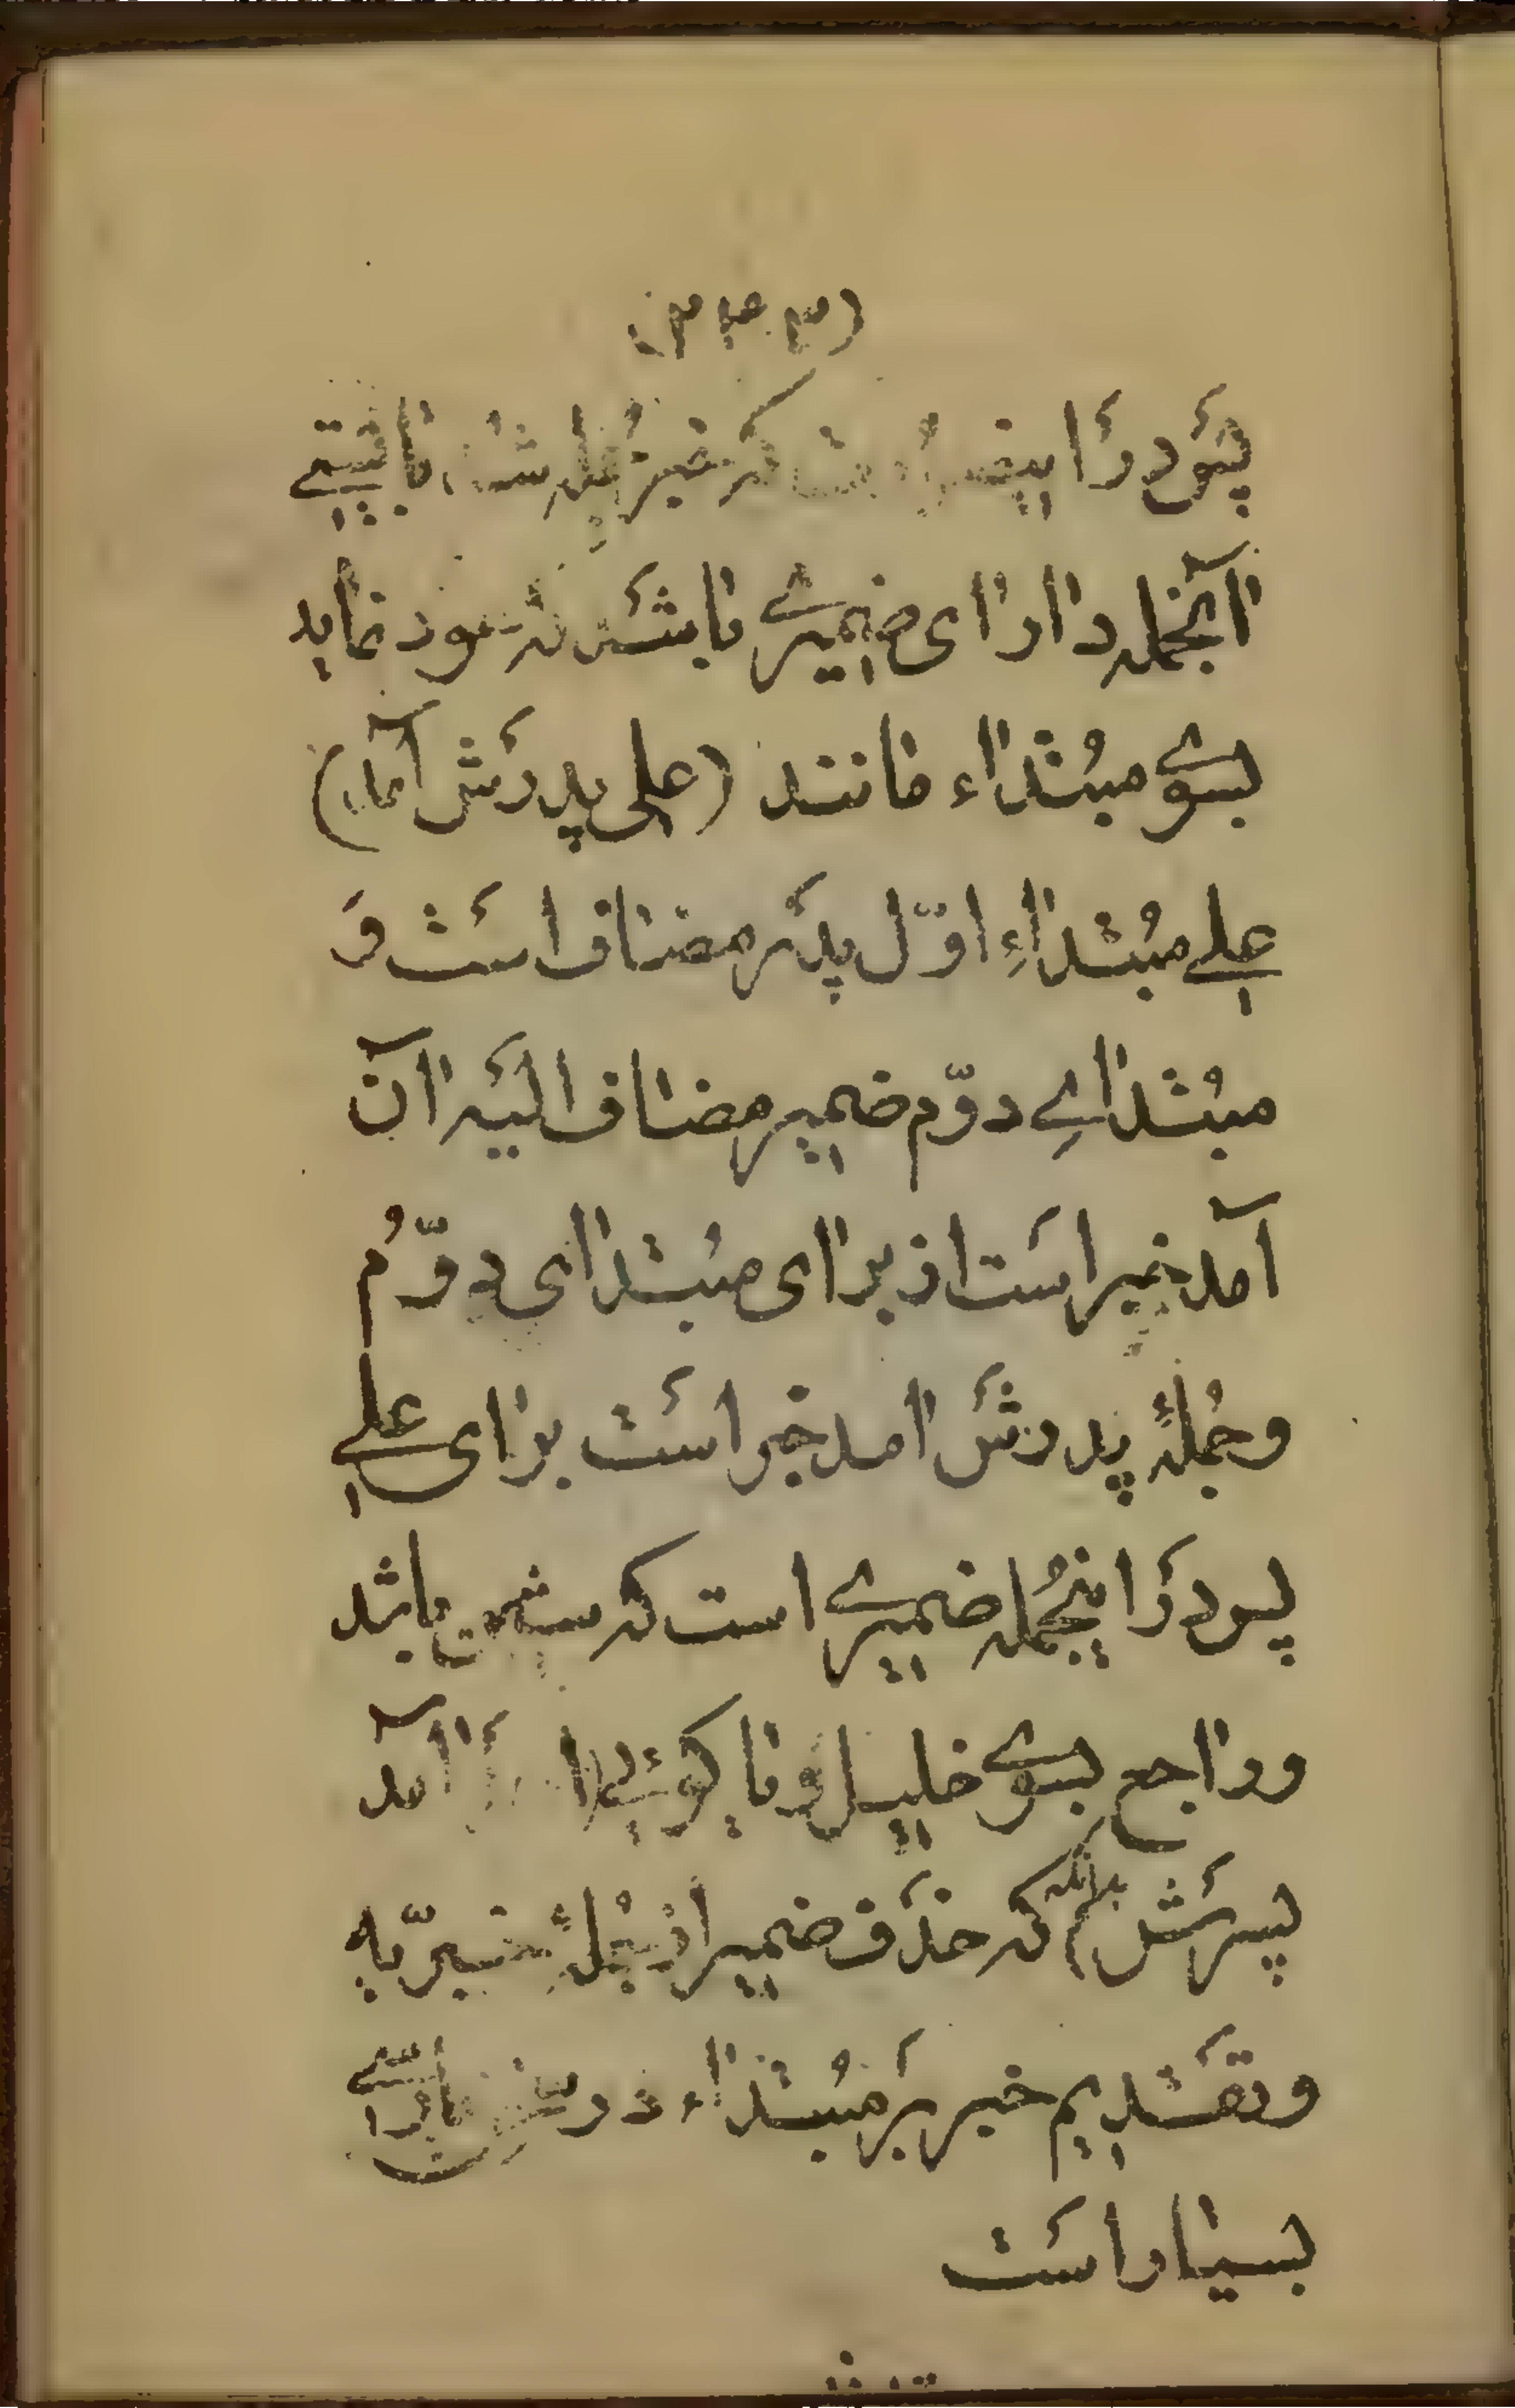 پس در اینصورت که خبر جمله شد بایستی
آنجمله دارای ضمیری باشد که عود نماید
بسوی مبتداء مانند (علی پدرش آمد)
علی مبتداءِ اوّل پدر مضاف است و
مبتداے دوّم ضمیر مضاف الیه آن
آمد خبر است از برای مبتدای دوّم
و جملهٔ پدرش امد خبر است برای علی
پس در اینجمله ضمیری است که شین باشد
و راجع بسوی خلیل و یا گوئی آمد
پسرش بدانکه حذف ضمیر از جملهٔ خبریّه
و تقدیم خبر بر مبتداء در فارسی
بسیار است